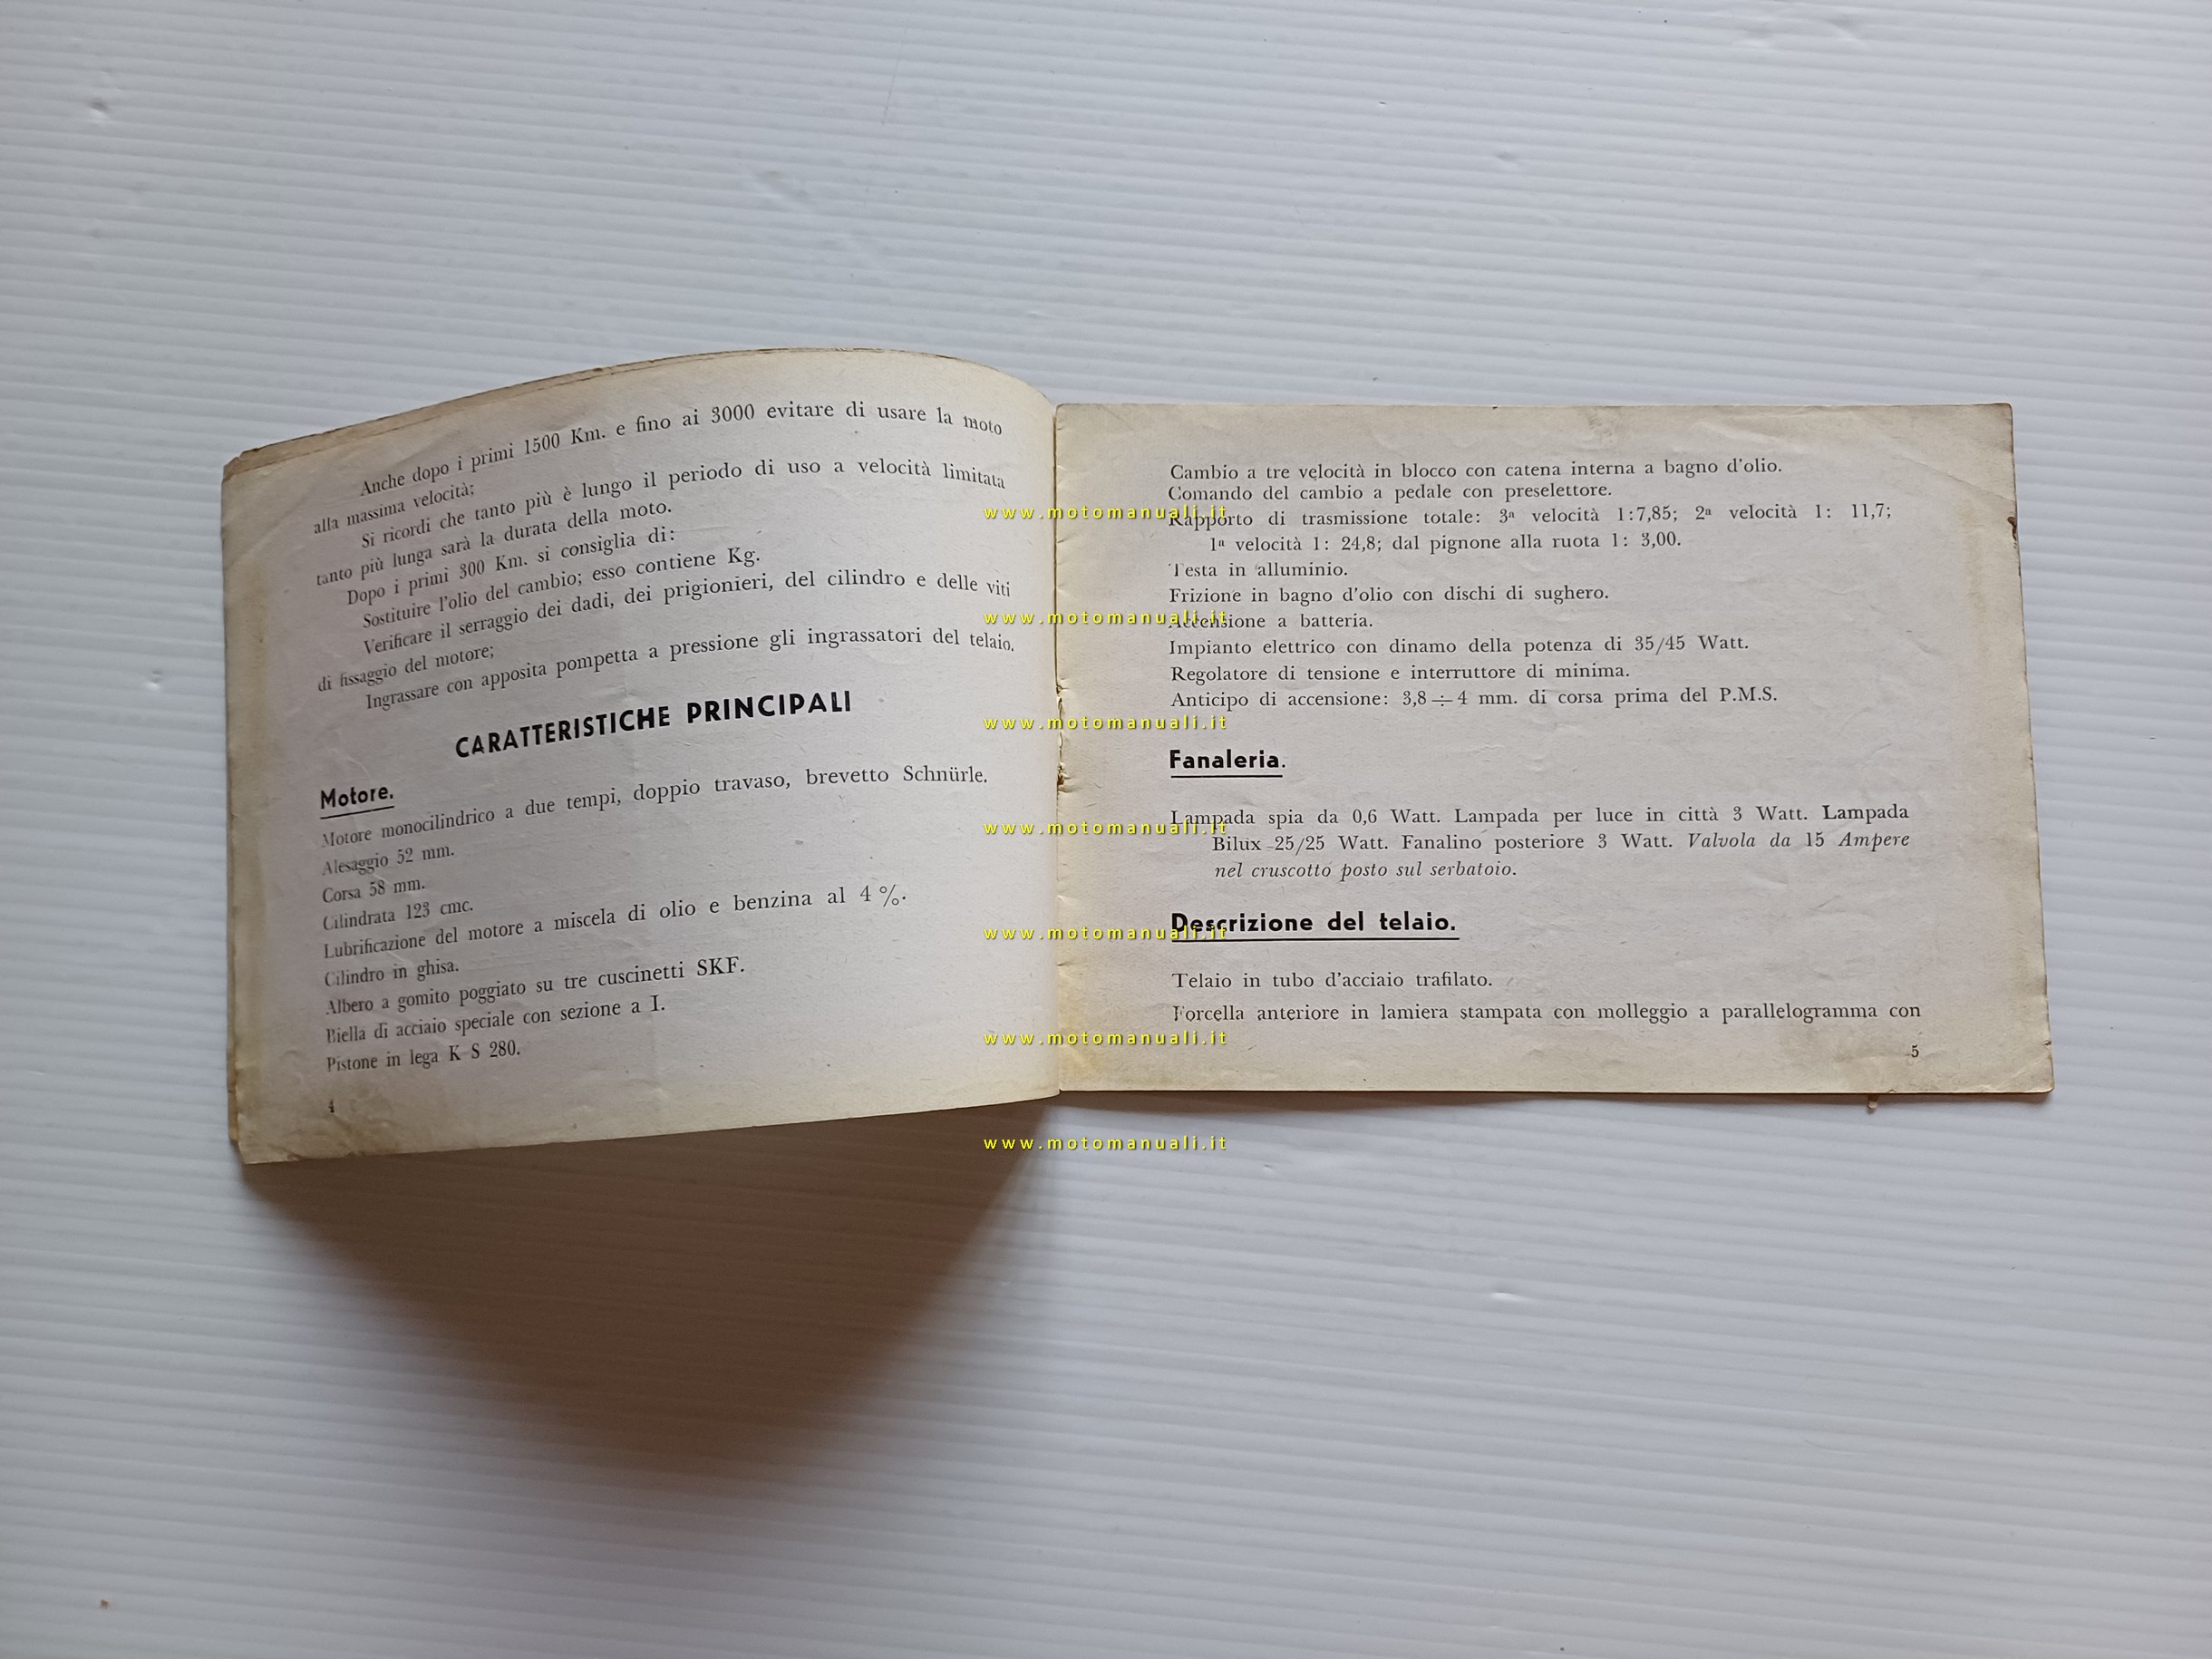 Anche dopo i primi 1500 Km. e fino ai 3000 evitare di usare la moto
alla massima velocità;
Si ricordi che tanto più è lungo il periodo di uso a velocità limitata
tanto più lunga sarà la durata della moto.
Dopo i primi 300 Km. si consiglia di:
Sostituire l'olio del cambio; esso contiene Kg.
Verificare il serraggio dei dadi, dei prigionieri, del cilindro e delle viti
di fissaggio del motore;
Ingrassare con apposita pompetta a pressione gli ingrassatori del telaio.
CARATTERISTICHE PRINCIPALI
Motore.
Motore monocilindrico a due tempi, doppio travaso, brevetto Schnürle.
Alesaggio 52 mm.
Corsa 58 mm.
Cilindrata 123 cmc.
Lubrificazione del motore a miscela di olio e benzina al 4 %.
Cilindro in ghisa.
Albero a gomito poggiato su tre cuscinetti SKF.
Biella di acciaio speciale con sezione a I.
Pistone in lega K S 280.
4
Cambio a tre velocità in blocco con catena interna a bagno d'olio.
Comando del cambio a pedale con preselettore.
Rapporto di trasmissione totale: 3ª velocità 1:7,85; 2ª velocità 1: 11,7;
1ª velocità 1: 24,8; dal pignone alla ruota 1: 3,00.
Testa in alluminio.
Frizione in bagno d'olio con dischi di sughero.
Accensione a batteria.
Impianto elettrico con dinamo della potenza di 35/45 Watt.
Regolatore di tensione e interruttore di minima.
Anticipo di accensione: 3,8 ÷ 4 mm. di corsa prima del P.M.S.
Fanaleria.
Lampada spia da 0,6 Watt. Lampada per luce in città 3 Watt. Lampada
Bilux 25/25 Watt. Fanalino posteriore 3 Watt. Valvola da 15 Ampere
nel cruscotto posto sul serbatoio.
Descrizione del telaio.
Telaio in tubo d'acciaio trafilato.
Forcella anteriore in lamiera stampata con molleggio a parallelogramma con
5
www.motomanuali.it
www.motomanuali.it
www.motomanuali.it
www.motomanuali.it
www.motomanuali.it
www.motomanuali.it
www.motomanuali.it